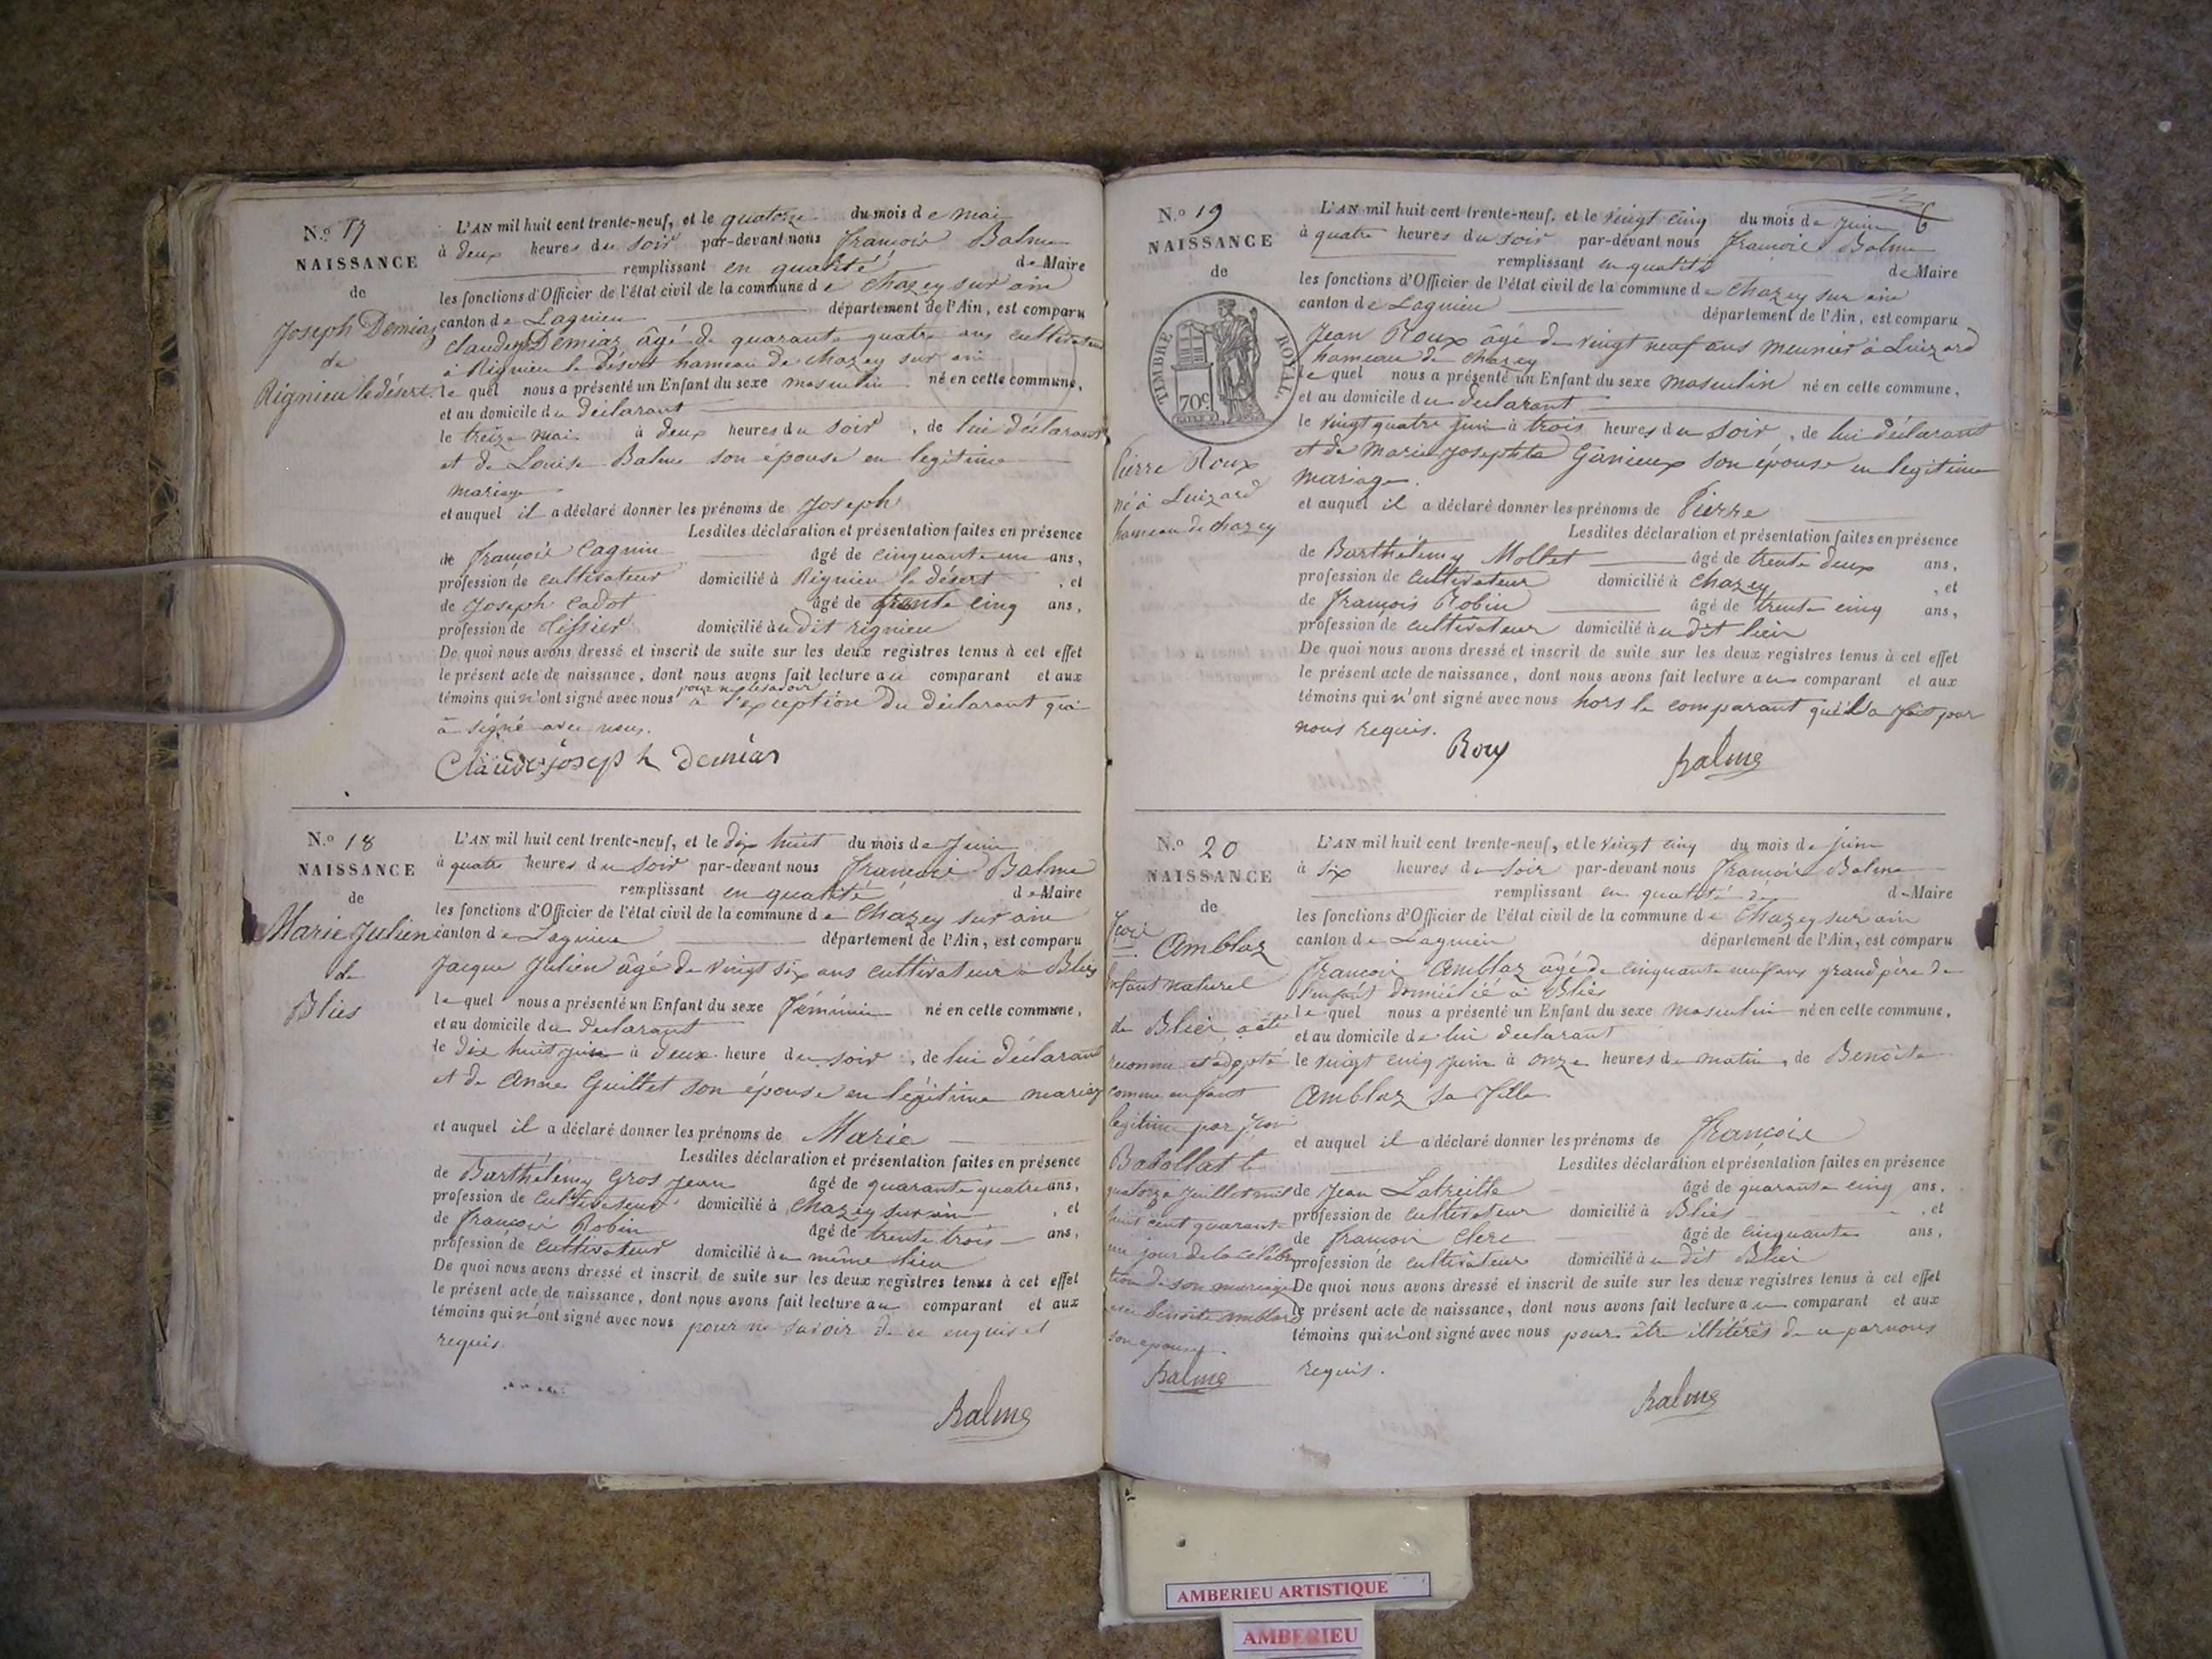 N.º 17
NAISSANCE
de
Joseph Demiaz
de
Rignieu le désert.
L'AN mil huit cent trente-neuf, et le quatorze du mois de mai
à deux heures du soir par-devant nous françois Balme
remplissant en qualité de Maire
les fonctions d'Officier de l'état civil de la commune de Chazey sur ain
canton de Lagnieu département de l'Ain, est comparu
Claude Demiaz âgé de quarante quatre ans cultivateur
à Rignieu le désert hameau de chazey sur ain
le quel nous a présenté un Enfant du sexe masculin né en cette commune,
et au domicile du déclarant
le treize mai à deux heures du soir, de lui déclarant
et de Louise Balme son épouse en legitime
mariage
et auquel il a déclaré donner les prénoms de Joseph
Lesdites déclaration et présentation faites en présence
de françois Cagnin âgé de cinquante un ans,
profession de cultivateur domicilié à Rignieu le désert, et
de Joseph Cadot âgé de trente cinq ans,
profession de tissier domicilié au dit rignieu
De quoi nous avons dressé et inscrit de suite sur les deux registres tenus à cet effet
le présent acte de naissance, dont nous avons fait lecture au comparant et aux
témoins qui n'ont signé avec nous pour ne le savoir à l'exception du déclarant qui
à signé avec nous.
Claude joseph demiar
N.º 18
NAISSANCE
de
Marie Julien
de
Blies
L'AN mil huit cent trente-neuf, et le dix huit du mois de Juin
à quatre heures du soir par-devant nous françois Balme
remplissant en qualité de Maire
les fonctions d'Officier de l'état civil de la commune de Chazey sur ain
canton de Lagnieu département de l'Ain, est comparu
Jacque Julien âgé de vingt six ans cultivateur à Blies
le quel nous a présenté un Enfant du sexe féminin né en cette commune,
et au domicile du declarant
le dix huit juin à deux heure du soir, de lui déclarant
et de Anne Guillet son épouse en légitime mariag
et auquel il a déclaré donner les prénoms de Marie
Lesdites déclaration et présentation faites en présence
de Barthélémy Gros jean âgé de quarante quatre ans,
profession de cultivateur domicilié à Chazey sur ain, et
de françois Robin âgé de trente trois ans,
profession de cultivateur domicilié au même lieu
De quoi nous avons dressé et inscrit de suite sur les deux registres tenus à cet effet
le présent acte de naissance, dont nous avons fait lecture au comparant et aux
témoins qui n'ont signé avec nous pour ne savoir de ce enquis et
requis.
Balme
6
N.º 19
NAISSANCE
de
TIMBRE ROYAL
70c
Pierre Roux
né à Luizard
hameau de chazey
L'AN mil huit cent trente-neuf, et le vingt cinq du mois de juin
à quatre heures du soir par-devant nous françois Balme
remplissant en qualité de Maire
les fonctions d'Officier de l'état civil de la commune de Chazey sur ain
canton de Lagnieu département de l'Ain, est comparu
Jean Roux âgé de vingt neuf ans meunier à Luizard
hameau de chazey
le quel nous a présenté un Enfant du sexe masculin né en cette commune,
et au domicile du declarant
le vingt quatre juin à trois heures du soir, de lui déclarant
et de Marie josephte Ganieux son épouse en legitime
mariage.
et auquel il a déclaré donner les prénoms de Pierre
Lesdites déclaration et présentation faites en présence
de Barthélemy Mollet âgé de trente deux ans,
profession de cultivateur domicilié à Chazey, et
de françois Robin âgé de trente cinq ans,
profession de cultivateur domicilié au dit lieu
De quoi nous avons dressé et inscrit de suite sur les deux registres tenus à cet effet
le présent acte de naissance, dont nous avons fait lecture au comparant et aux
témoins qui n'ont signé avec nous hors le comparant qui l'a fait par
nous requis.
Roux Balme
N.º 20
NAISSANCE
de
Amblaz
Enfant naturel
de Blies a été
reconnu et adopté
comme enfant
legitime par
Batollat le
quatorze juillet mil
huit cent quarante
un jour de la celebra
tion de son mariage
avec Benoite amblard
son epouse.
Balme
L'AN mil huit cent trente-neuf, et le vingt cinq du mois de juin
à six heures du soir par-devant nous françois Balme
remplissant en qualité de Maire
les fonctions d'Officier de l'état civil de la commune de Chazey sur ain
canton de Lagnieu département de l'Ain, est comparu
françois Amblaz âgé de cinquante neuf ans grand père de
l'enfant domicilié à Blies
le quel nous a présenté un Enfant du sexe masculin né en cette commune,
et au domicile de lui declarant
le vingt cinq juin à onze heures du matin, de Benoite
Amblaz sa fille
et auquel il a déclaré donner les prénoms de françois
Lesdites déclaration et présentation faites en présence
de Jean Latreille âgé de quarante cinq ans,
profession de cultivateur domicilié à Blies, et
de françois Clerc âgé de cinquante ans,
profession de cultivateur domicilié au dit Blies
De quoi nous avons dressé et inscrit de suite sur les deux registres tenus à cet effet
le présent acte de naissance, dont nous avons fait lecture au comparant et aux
témoins qui n'ont signé avec nous pour être illitérés de ce par nous
requis.
Balme
AMBERIEU ARTISTIQUE
AMBERIEU